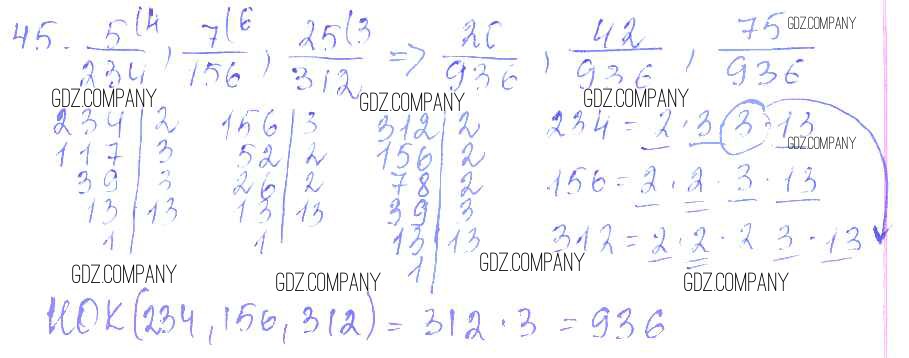 45. 5(4/234, 7(6/156, 25(3/312 => 20/936, 42/936, 75/936
GDZ.COMPANY
GDZ.COMPANY GDZ.COMPANY GDZ.COMPANY
234 | 2 156 | 3 312 | 2 234 = 2 · 3 3 · 13
GDZ.COMPANY
117 | 3 52 | 2 156 | 2
39 | 3 26 | 2 78 | 2 156 = 2 · 2 · 3 · 13
13 | 13 13 | 13 39 | 3
1 1 13 | 13 312 = 2 · 2 · 2 3 · 13
1
GDZ.COMPANY GDZ.COMPANY GDZ.COMPANY GDZ.COMPANY
НОК(234, 156, 312) = 312 · 3 = 936